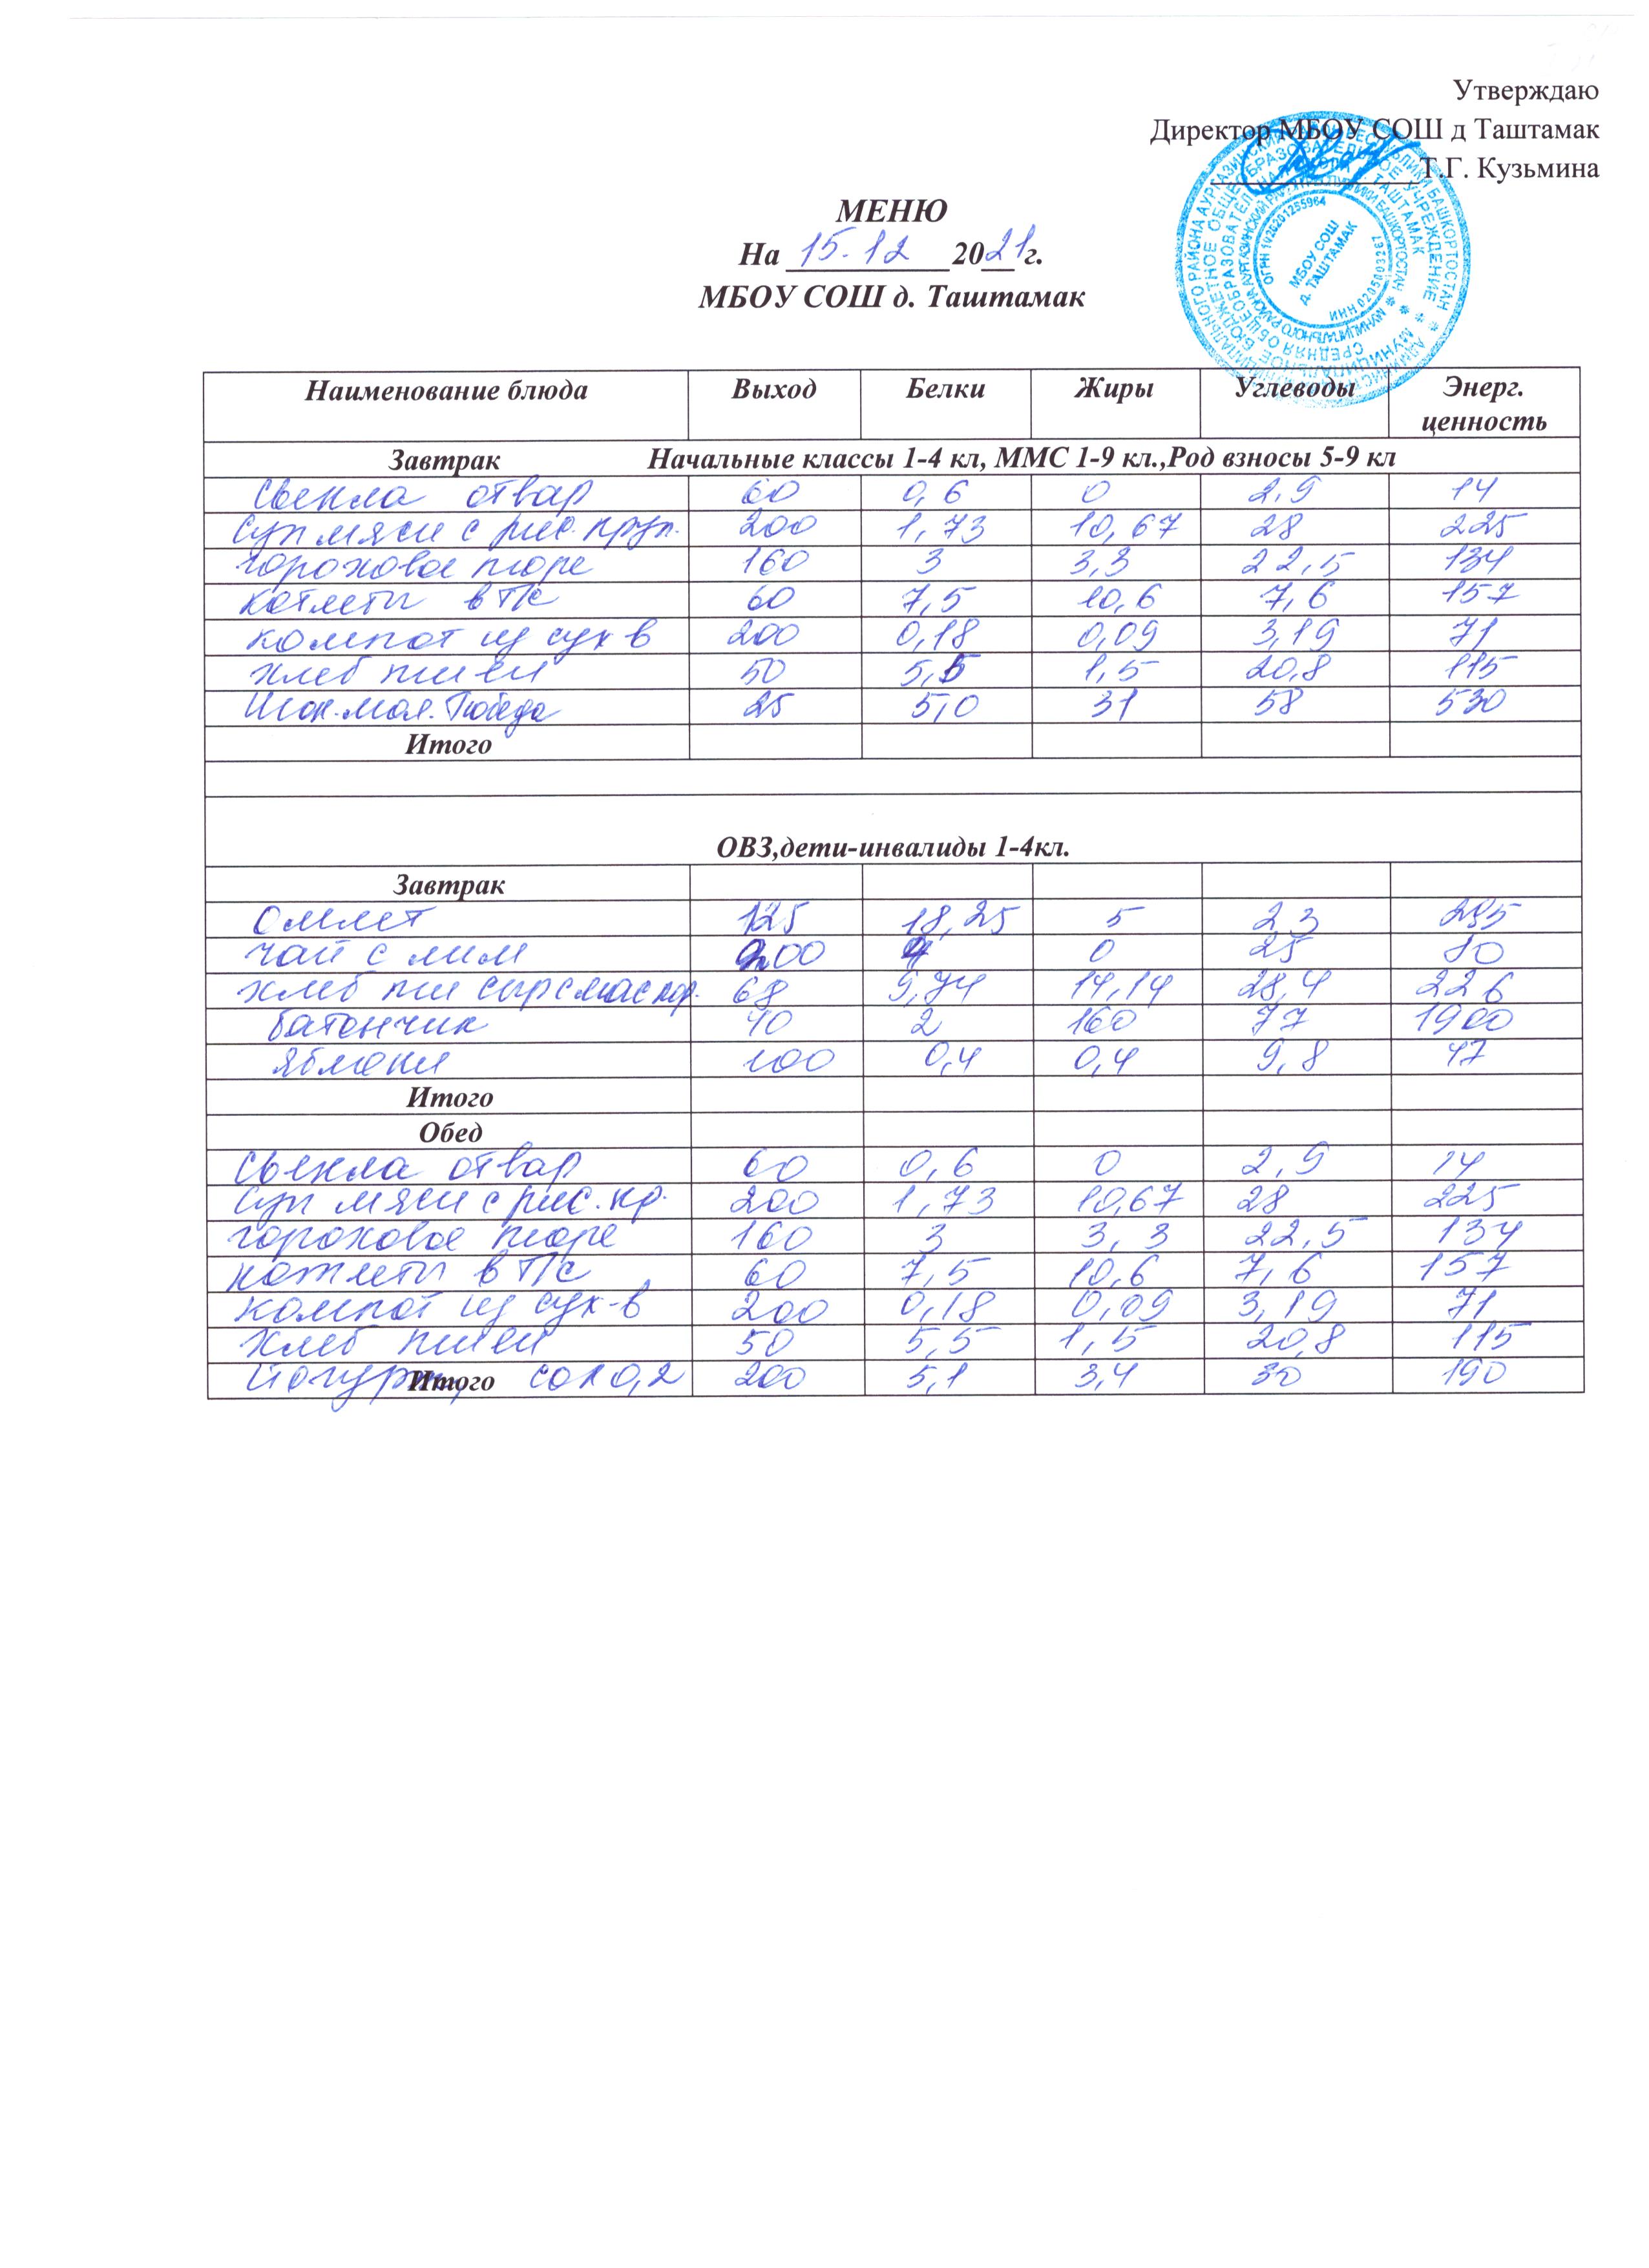 Утверждаю
Директор МБОУ СОШ д Таштамак
Т.Г. Кузьмина
МЕНЮ
На 15.12 2021 г.
МБОУ СОШ д. Таштамак
ОГРН 1020201255964
МБОУ СОШ
д. ТАШТАМАК
ИНН 0205003237
Наименование блюда Выход Белки Жиры Углеводы Энерг. ценность
Завтрак Начальные классы 1-4 кл, ММС 1-9 кл.,Род взносы 5-9 кл
Свекла отвар 60 0,6 0 2,9 14
Суп мясн с рис. круп. 200 1,73 10,67 28 225
гороховое пюре 160 3 3,3 22,5 134
котлеты в т/с 60 7,5 10,6 7,6 157
компот из сух в 200 0,18 0,09 3,19 71
хлеб пшен 50 5,5 1,5 20,8 115
Шок. мол. Победа 25 5,0 31 58 530
Итого
ОВЗ,дети-инвалиды 1-4кл.
Завтрак
Омлет 125 18,25 5 2,3
чай с лим 200 0 25 80
хлеб пш сыр с мас пор. 68 9,74 14,14 28,4 226
батончик 40 2 160 77 1900
яблоки 100 0,4 0,4 9,8 47
Итого
Обед
Свекла отвар 60 0,6 0 2,9 14
Суп мясн с рис. кр. 200 1,73 10,67 28 225
гороховое пюре 160 3 3,3 22,5 134
котлеты в т/с 60 7,5 10,6 7,6 157
компот из сух-в 200 0,18 0,09 3,19 71
хлеб пшен 50 5,5 1,5 20,8 115
Итого сок 0,2 200 5,1 3,4 30 190